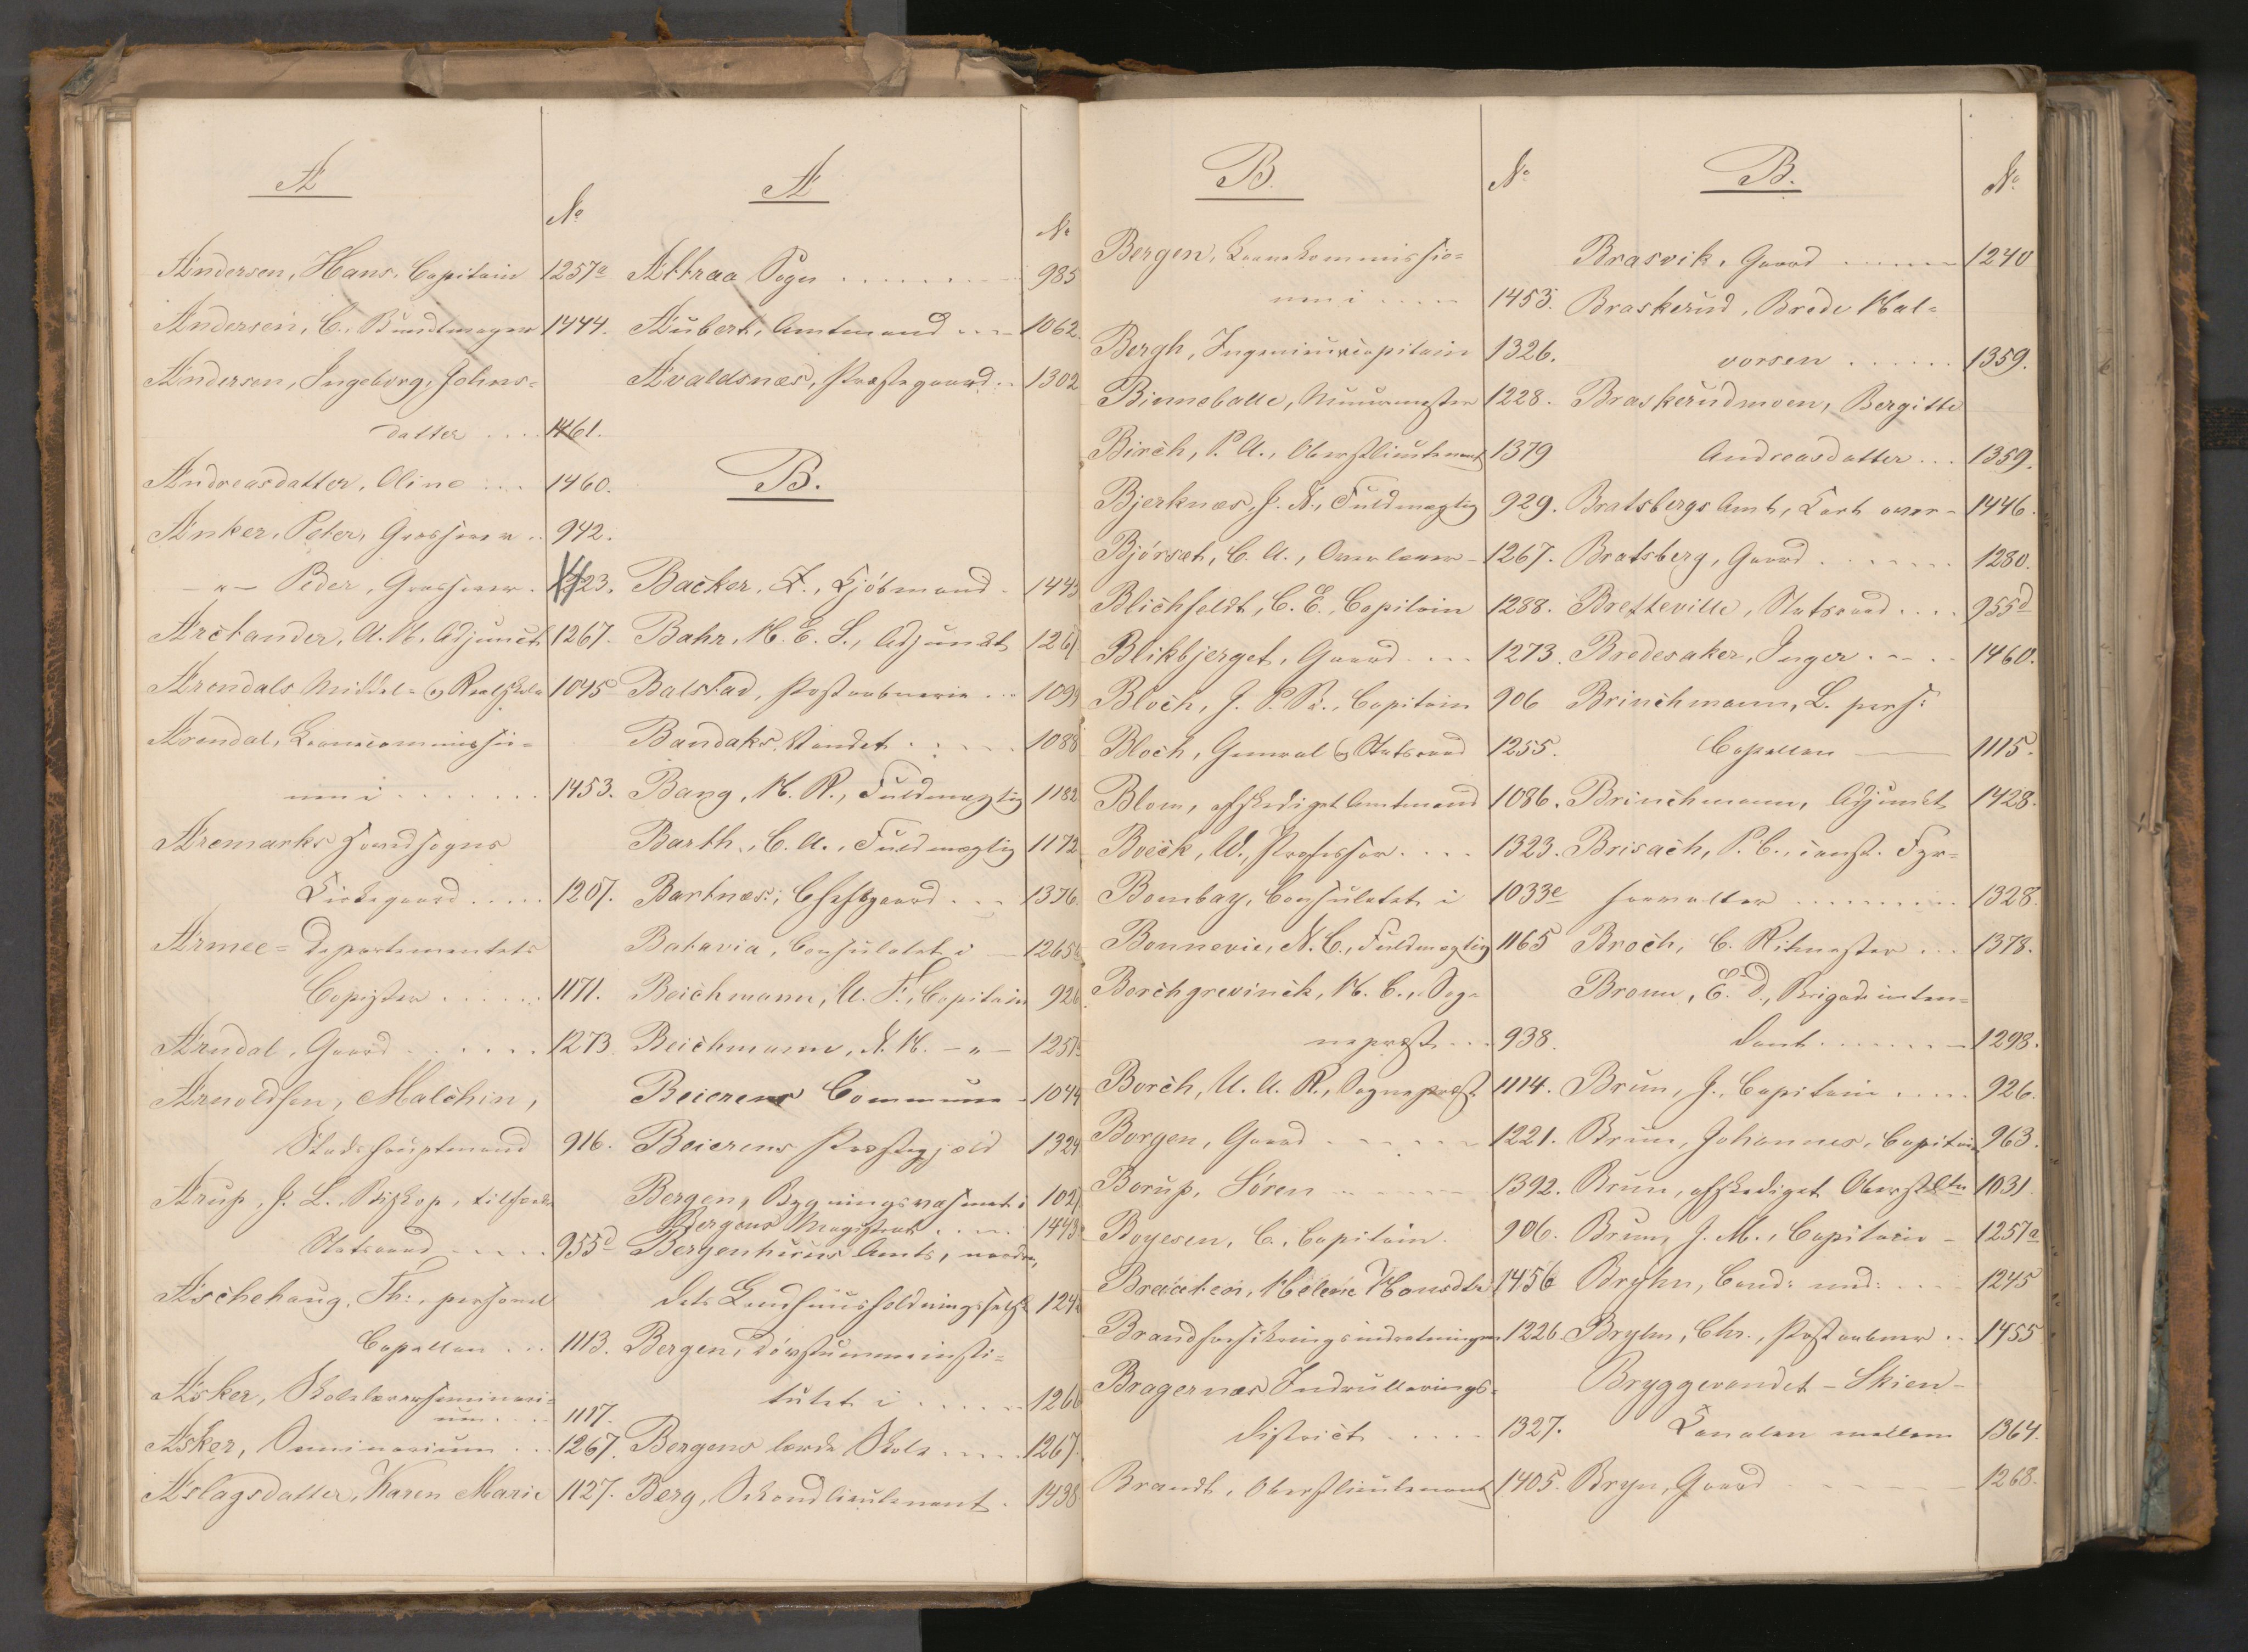 A
No
Andersen, Hans, Capitain 1257a
Andersen, C. Bundtmager 1444.
Andersen, Ingeborg, Johns-
datter .... 1461.
Andreasdatter, Oline .... 1460.
Anker, Peter, Grosserer .. 942.
-"- Peder, Grosserer. 1423.
Arctander, A. H. Adjunct 1267.
Arendals Middel- og Realskole 1045
Arendal, Laanecommissio-
nen i ....... 1453.
Aremarks Hovedsogns
Kirkegaard ..... 1207.
Armee-Departementets
Copister ...... 1171.
Arndal, Gaard ...... 1273.
Arnoldsen, Malchin,
Stadshauptmand 916.
Arup, J. L. Biskop, tilforord.
Statsraad ..... 955d
Aschehoug, Th:, personel
Capellan ... 1113.
Asker, Skolelærerseminari-
um .... 1117.
Asker, Seminarium ... 1267.
Aslagsdatter, Karen Marie 1127.
A
No
Attraa Sogn ........ 985
Aubert, Amtmand .... 1062.
Avaldsnæs, Præstegaard .. 1302
B.
Backer, L., Kjöbmand . 1443
Bahr, H. E. S., Adjunkt 1267
Balstad, Postaabnerie ... 1099
Bandaks Vandet ..... 1088
Bang, H. R., Fuldmægtig 1182
Barth, C. A., Fuldmægtig 1172
Bartnæs, Chefsgaard ... 1376.
Batavia, Consulatet i — 1265
Beichmann, A. F., Capitain 926
Beichmann, N. H. -"- 1257
Beierens Commune - 1044
Beierens Præstegjæld 1324
Bergen, Bygningsvæsenet i 102
Bergens Magistrat .... 1443
Bergenhuus Amts, nordre,
dets Landhuusholdningsselsk. 124
Bergen, Dövstummeinsti-
tutet i ...... 1266
Bergens lærde Skole .... 1267.
Berg, Sekondlieutenant . 1438
B.
No
Bergen, Laanekommissio-
nen i ..... 1453.
Bergh, Ingenieurcapitain 1326.
Binneballe, Muurmester 1228.
Birch, P. A., Oberstlieutenant 1379
Bjerknæs, J. N., Fuldmægtig 929.
Bjørset, C. A., Overlærer - 1267.
Blichfeldt, C. E., Capitain 1288.
Blikbjerget, Gaard .... 1273.
Bloch, J. P. B., Capitain 906
Bloch, General og Statsraad 1255.
Blom, afskediget Amtmand 1086.
Boeck, W., Professor .... 1323.
Bombay, Consulatet i 1033e
Bonnevie, N. C., Fuldmægtig 1165
Borchgrevinck, H. C., Sog-
nepræst ... 938.
Borch, U. A. R., Sognepræst 1114.
Borgen, Gaard ...... 1221.
Borup, Sören ...... 1392.
Boyesen, C., Capitain. 906.
Braaten, Helene Hansdtr. 1456
Brandforsikringsindretningen 1226.
Bragernæs Indrulerings-
district ..... 1327.
Brandt, Oberstlieutenant 1405.
B.
No.
Brasvik, Gaard ..... 1240
Braskerud, Brede Hal-
vorsen ...... 1359.
Braskerudmoen, Bergitte
Andreasdatter ... 1359.
Bratsbergs Amt, Kart over - 1446.
Bratsberg, Gaard ....... 1280.
Bretteville, Statsraad .... 955d
Bredesaker, Inger .... 1460.
Brinchmann, L. pers:
Capellan — 1115.
Brinchmann, Adjunkt 1428.
Brisach, P. C., const. Fyr-
forvalter ......... 1328.
Broch, C. Ritmester ... 1378.
Broun, E. D., Brigadeinten-
dant ....... 1298.
Brun, J., Capitain ..... 926.
Brun, Johannes, Capitain 963.
Brun, afskediget Oberstltn 1031.
Brun, J. M., Capitain - 1257a
Bryhn, Cand: med: ... 1245
Bryhn, Chr., Postaabner .. 1455
Bryggevandet - Skien -
Kanalen mellem 1364.
Bryn, Gaard ..... 1268.